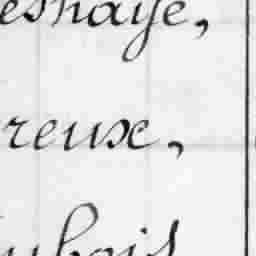 eshaye,
reux,
ubois